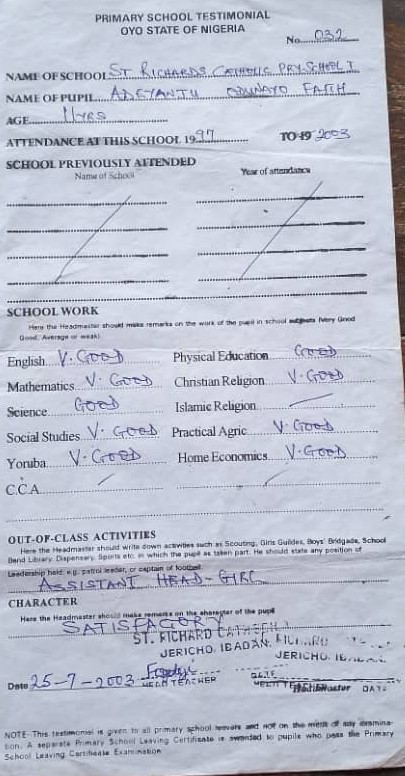 PRIMARY SCHOOL TESTIMONIAL
OYO STATE OF NIGERIA
No. 032
NAME OF SCHOOL ST RICHARDS CATHOLIC PRY SCHOOL I
NAME OF PUPIL ADEYANJU ODUNAYO FAITH
AGE 11YRS
ATTENDANCE AT THIS SCHOOL 1997 TO 19 2003
SCHOOL PREVIOUSLY ATTENDED
Name of School Year of attendance
SCHOOL WORK
Here the Headmaster should make remarks on the work of the pupil in school subjects (Very Good
Good, Average or weak).
English V. GOOD Physical Education GOOD
Mathematics V. GOOD Christian Religion V. GOOD
Science GOOD Islamic Religion
Social Studies V. GOOD Practical Agric V. GOOD
Yoruba V. GOOD Home Economics V. GOOD
C.C.A
OUT-OF-CLASS ACTIVITIES
Here the Headmaster should write down activities such as Scouting, Girls Guildes, Boys' Bridgade, School
Band Library, Dispensery, Sports etc. in which the pupil as taken part. He should state any position of
Leadership held. e.g. patrol leader, or captain of football.
ASSISTANT HEAD-GIRL
CHARACTER
Here the Headmaster should make remarks on the character of the pupil
SATISFACORY
ST. RICHARD
JERICHO, IBADAN.
JERICHO,
Date 25-7-2003 HEAD TEACHER DATE
NOTE-This testimonial is given to all primary school leavers and not on the merit of any examina-
tion. A separate Primary School Leaving Certificate is awarded to pupils who pass the Primary
School Leaving Certificate Examination